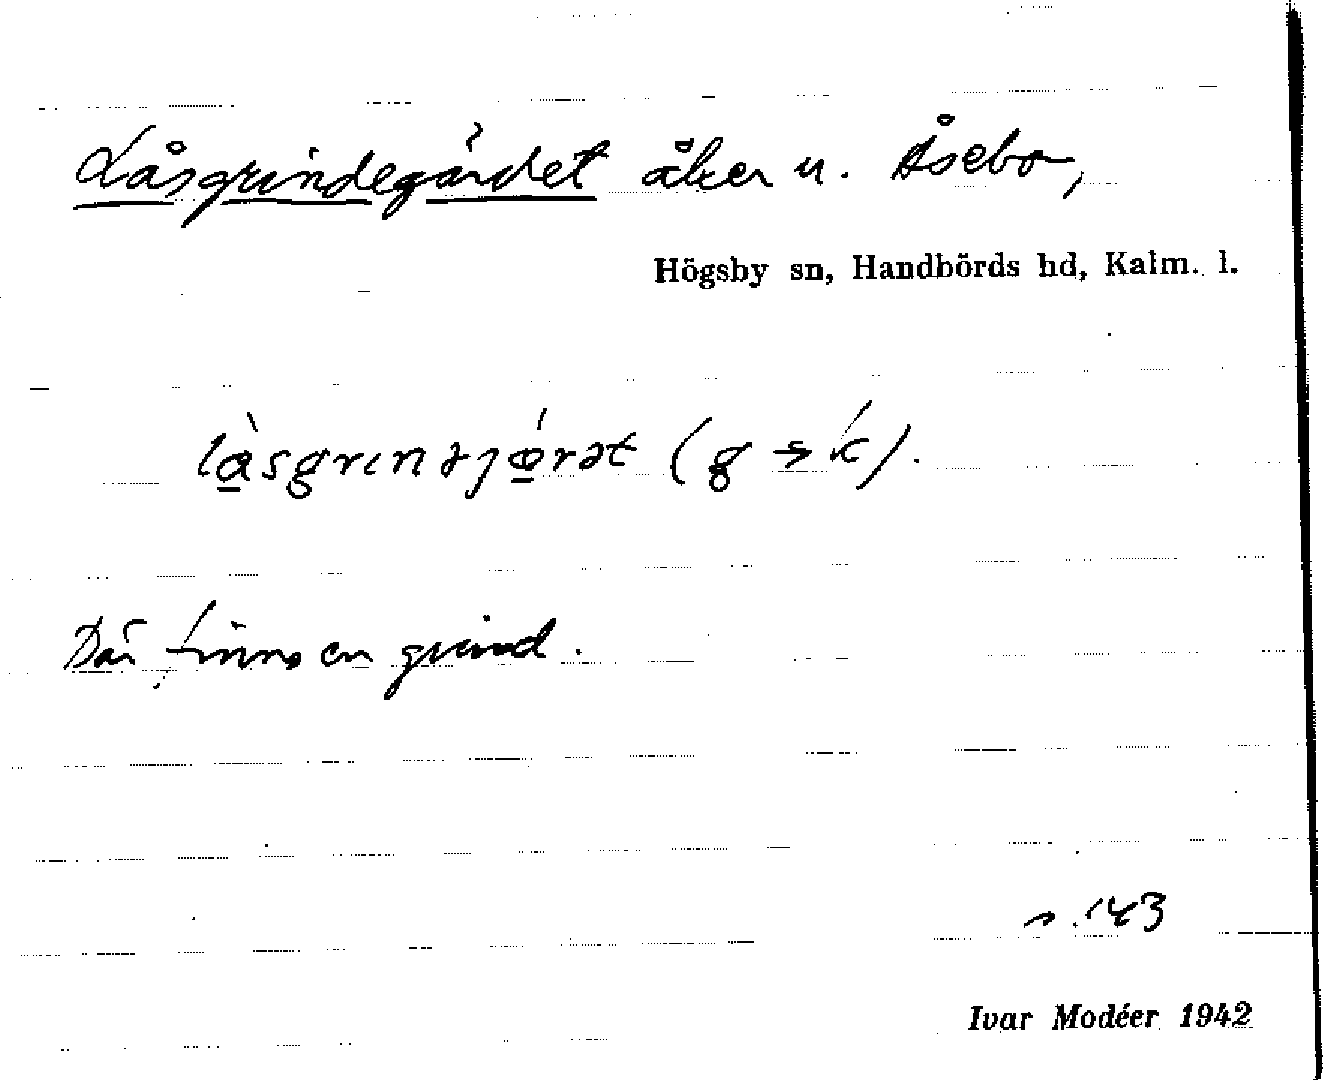 Låsgrindegärdet åker u. Åsebo,
Högsby sn, Handbörds hd, Kalm. l.
làsgrɪnəjǿrət (g → k).
Där finns en grind.
s. 143
Ivar Modéer 1942